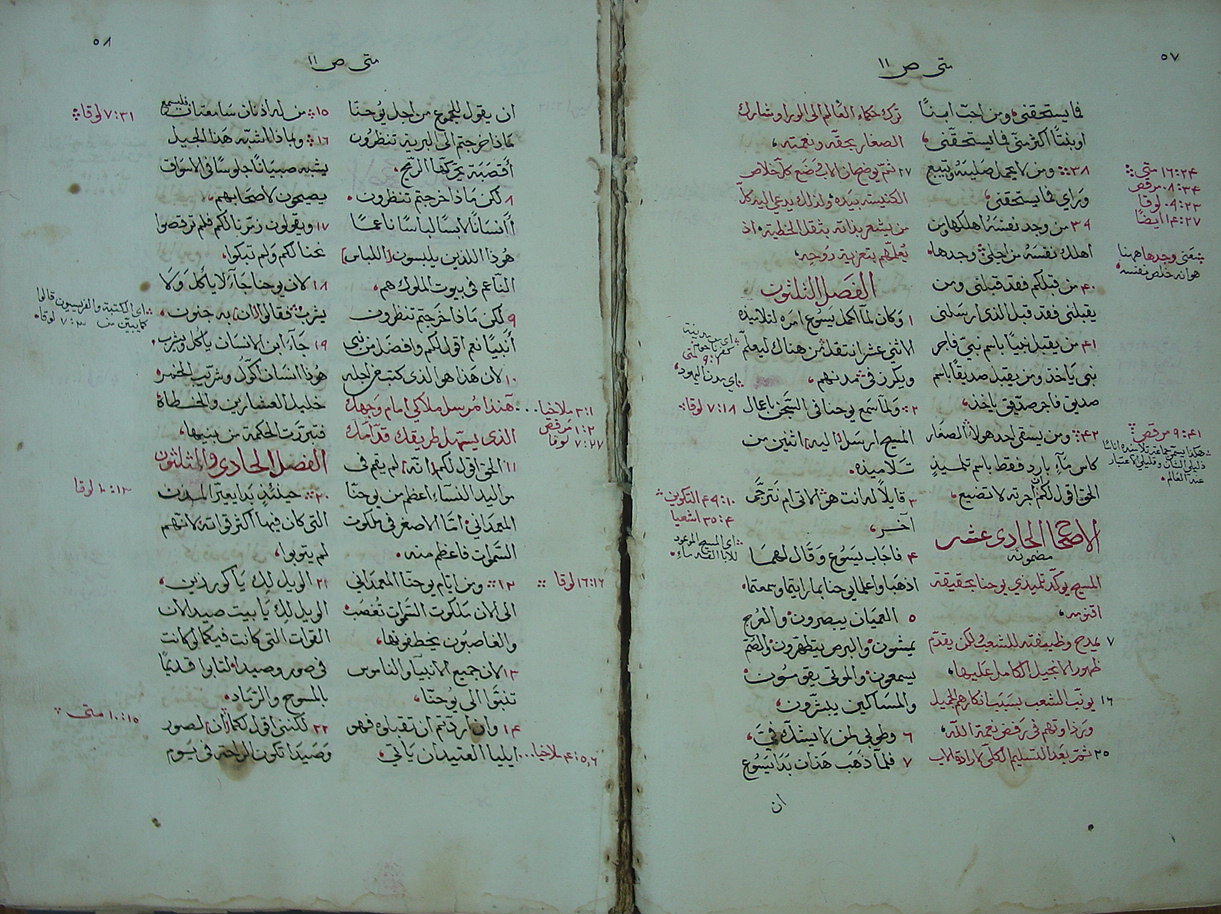 ٥٧
متى ص ١١
فما يستحقني ومن احب ابنًا
او بنتًا اكثر مني فما يستحقني
٣٨ ومن لا يحمل صليبه ويتبع
وراي فما يستحقني
٣٩ من وجد نفسه اهلكها ومن
اهلك نفسه من اجلي وجدها
٤٠ من قبلكم فقد قبلني ومن
يقبلني فقد قبل الذي ارسلني
٤١ من يقبل نبيًا باسم نبي فاجر
نبي ياخذ ومن يقبل صديقًا باسم
صديق فاجر صديق ياخذ
٤٢ ومن يسقي احد هولاء الصغار
كاس ماء بارد فقط باسم تلميذ
الحق اقول لكم ان اجرته لا تضيع
الاصحاح الحادي عشر
مضمونه
المسيح يوكد تلميذي يوحنا بحقيقة
اقنومه
٧ يمدح وظيفته للشعب ولكن يقدم
ظهور الانجيل الكامل عليها
١٦ يونب الشعب بسبب انكارهم الجميل
ورذاوتهم في رفض نعمة الله
٢٥ ثم بعد التسليم الكلي لارادة الاب
ترك حكماء العالم الى الوراء وشارك
الصغار بحقه ونعمته
٢٧ ثم يوضح ان الاب وضع كل خلاص
الكنيسه بيده ولذلك يدعي اليه كل
من يشعر بذاته بثقل الخطية اذ
يعلمهم بتعزية روحه
الفصل الثلثون
١ وكان لما اكمل يسوع امره لتلاميذه
الاثني عشر انتقل من هناك ليعلم
ويكرز في مدنهم
٢ ولما سمع يوحنا في السجن باعمال
المسيح ارسل [اليه] اثنين من
تلاميذه
٣ قايلًا له انت هو الاتي ام نترجى
آخر
٤ فاجاب يسوع وقال لهما
اذهبا واعلما يوحنا بما رايتما وسمعتما
٥ العميان يبصرون والعرج
يمشون والبرص يتطهرون والصم
يسمعون والموتى يقومون
والمساكين يبشرون
٦ وطوبى لمن لا يشك فيّ
٧ فلما ذهب هذان بدا يسوع
ان
١٦:٢٤ متى
٨:٣٤ مرقص
٩:٢٣ لوقا
١٤:٢٧ ايضًا
يعني وجدها هنا
هو انه خلص نفسه
٩:٤١ مرقص
عند العالم
٩:١ متى
اي مدن اليهود
٧:١٨ لوقا
٤٩:١٠ التكوين
٣٥:٤ اشعيا
اي المسيح الموعود
للابا القدماء
٥٨
متى ص ١١
ان يقول للجموع من اجل يوحنا
ماذا خرجتم الى البرية تنظرون
أقصبة تحركها الريح
٨ لكن ماذا خرجتم تنظرون
أانسانًا لابسًا لباسًا ناعمًا
هوذا اللذين يلبسون [اللباس]
الناعم في بيوت الملوك هم
٩ لكن ماذا خرجتم تنظرون
أنبيًا نعم اقول لكم وافضل من نبي
١٠ لان هذا هو الذي كتب من اجله
هنذا مرسل ملاكي امام وجهك
الذي يسهل طريقك قدامك
١١ الحق اقول لكم [انه] لم يقم في
مواليد النساء اعظم من يوحنا
المعمداني امّا الاصغر في ملكوت
السموات فاعظم منه
١٢ ومن ايام يوحنا المعمداني
الى الان ملكوت السموات تغصب
والغاصبون يخطفونها
١٣ لان جميع الانبيا والناموس
تنبوا الى يوحنا
١٤ وان اردتم ان تقبلوه فهو
ايليا العتيد ان ياتي
١٥ من له اذنان سامعتان فليسمع
١٦ وبماذا اشبه هذا الجيل
يشبه صبيانًا جلوسًا في الاسواق
يصيحون لاصحابهم
١٧ ويقولون زمرنا لكم فلم ترقصوا
نحنا لكم ولم تبكوا
١٨ لان يوحنا جآء لا ياكل ولا
يشرب فقالوا [ان] به جنون
١٩ جآء ابن الانسان ياكل ويشرب
هوذا انسان اكول وشريب الخمر
خليل العشارين والخطاة
فتبررت الحكمة من بنيها
الفصل الحادي والثلثون
٢٠ حينئذٍ بدا يعير المدن
التي كان فيها اكثر قواته لانهم
لم يتوبوا
٢١ الويل لكِ يا كورزين
الويل لكِ يا بيت صيدا لان
القوات التي كانت فيكما لو كانت
في صور وصيدا لتابوا قديمًا
بالمسوح والرماد
٢٢ لكنني اقول لكما [ان] لصور
وصيدا تكون الراحة في يوم
٣:١ ملاخيا
١:٢ مرقص
٧:٢٧ لوقا
١٦:١٦ لوقا
٤:٥،٦ ملاخيا
٧:٣١ لوقا
اي الكتبة والفريسيون قالوا
كما يبين من ٧:٣٠ لوقا
١٠:١٣ لوقا
١٠:١٥ متى